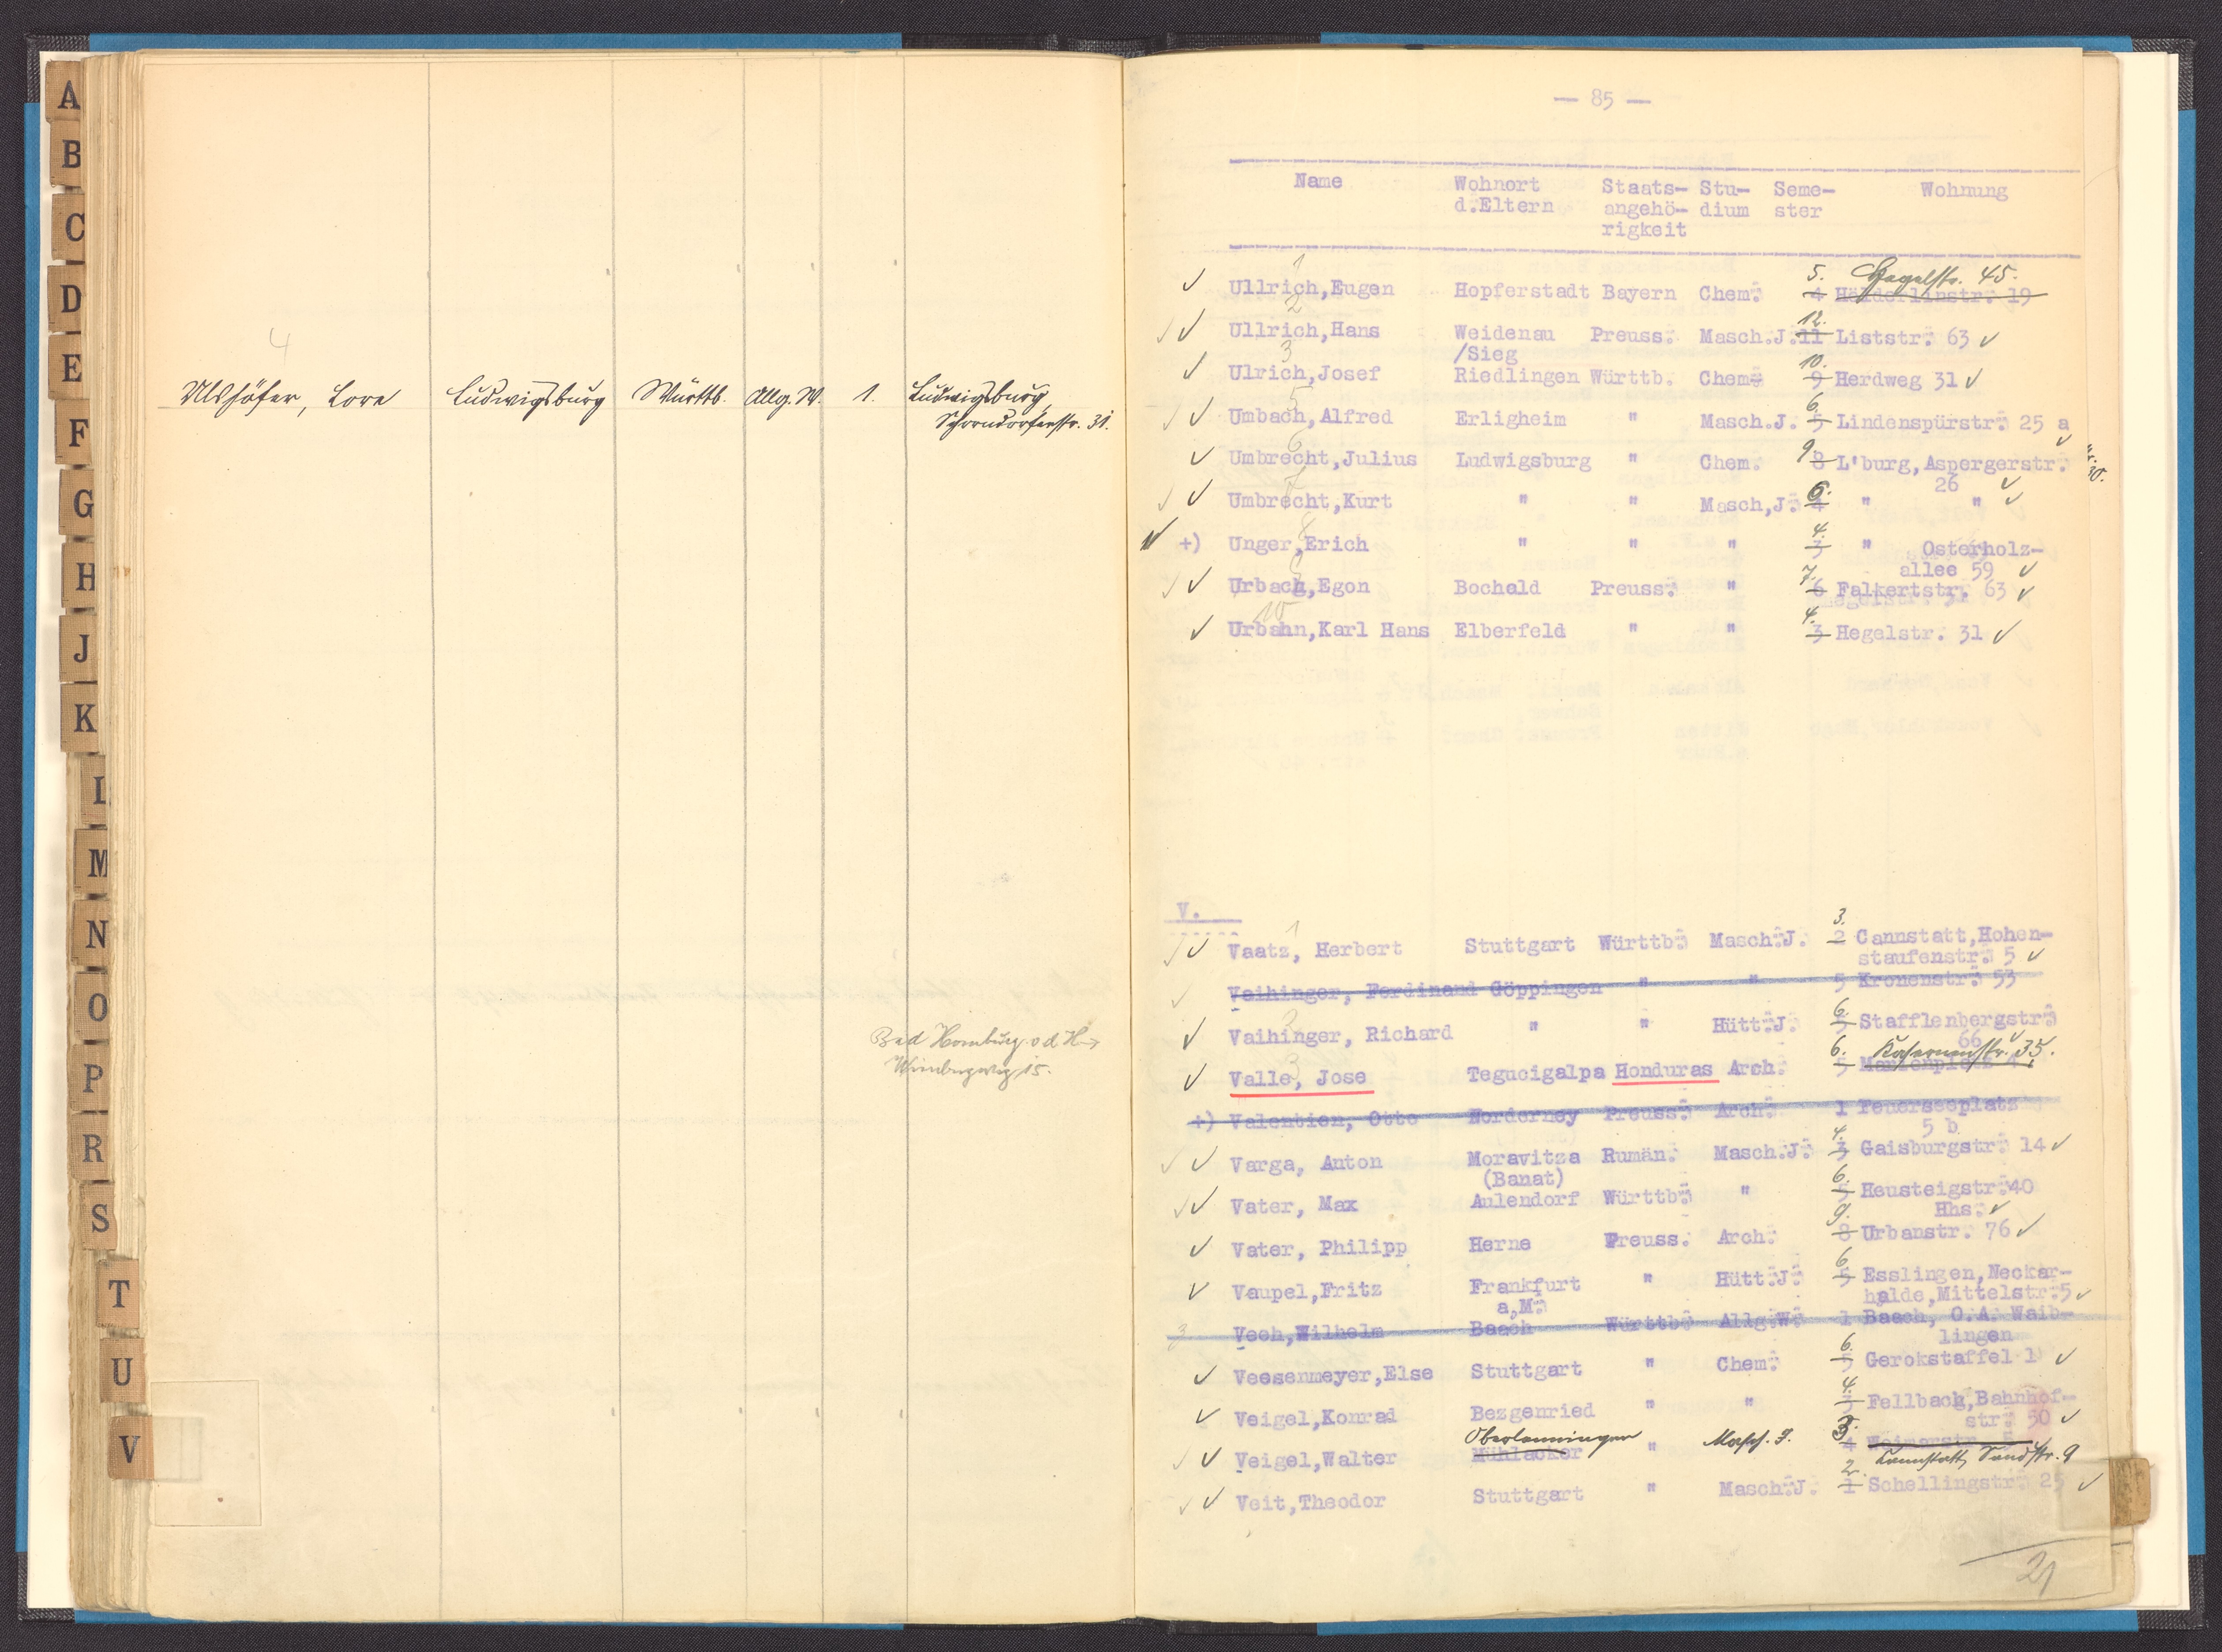 A
B
C
D
E
F
G
H
J
K
L
M
N
O
P
R
S
T
U
V
4
Ulshöfer, Lore Ludwigsburg Württb. Allg. W. 1. Ludwigsburg,
Schorndorferstr. 31.
Bad Homburg v d H
15.
— 85 —
Name Wohnort Staats- Stu- Seme- Wohnung
d.Eltern angehö- dium ster
rigkeit
1 5. Hegelstr. 45.
✓ Ullrich,Eugen Hopferstadt Bayern Chem. 4 Hölderlinstr. 19
2 12.
✓✓ Ullrich,Hans Weidenau Preuss. Masch.J. 11 Liststr. 63 ✓
3 /Sieg 10.
✓ Ulrich,Josef Riedlingen Württb. Chem. 9 Herdweg 31 ✓
5 6.
✓✓ Umbach,Alfred Erligheim " Masch.J. 5 Lindenspürstr. 25 a
✓
6 9
✓ Umbrecht,Julius Ludwigsburg " Chem. 8 L'burg,Aspergerstr. 30.
7 6. 26 ✓
✓✓ Umbrecht,Kurt " " Masch,J. 4 " " ✓
8 4.
✓ +) Unger,Erich " " " 3 " Osterholz-
9 7. allee 59 ✓
✓✓ Urbach,Egon Bochald Preuss. " 6 Falkertstr. 63 ✓
10 4.
✓ Urbahn,Karl Hans Elberfeld " " 3 Hegelstr. 31 ✓
V.
1 3.
✓✓ Vaatz, Herbert Stuttgart Württb. Masch.J. 2 Cannstatt,Hohen-
staufenstr. 5 ✓
✓ Vaihinger, Ferdinand Göppingen " " 5 Kronenstr. 53
2 6.
✓ Vaihinger, Richard " " Hütt.J. 5 Stafflenbergstr.
66 ✓
3 6. Kasernenstr. 35.
✓ Valle, Jose Tegucigalpa Honduras Arch. 5 Marienplatz 4
+) Valentien, Otto Norderney Preuss. Arch. 1 Feuerseeplatz
5 b
4.
✓✓ Varga, Anton Moravitza Rumän. Masch.J. 3 Gaisburgstr. 14 ✓
(Banat) 6.
✓✓ Vater, Max Aulendorf Württb. " 5 Heusteigstr.40
9. Hhs. ✓
✓ Vater, Philipp Herne Preuss. Arch. 8 Urbanstr. 76 ✓
6.
✓ Vaupel,Fritz Frankfurt " Hütt.J. 5 Esslingen,Neckar-
a,M. halde,Mittelstr.5 ✓
3 Veeh,Wilhelm Baach Württb. Allg.W. 1 Baach, O.A. Waib-
6. lingen
✓ Veesenmeyer,Else Stuttgart " Chem. 5 Gerokstaffel 1 ✓
4.
✓ Veigel,Konrad Bezgenried " " 3 Fellbach,Bahnhof-
str. 50 ✓
Oberlenningen Masch. J. 5.
✓✓ Veigel,Walter Mühlacker " 4 Weimarstr. 5
2. Cannstatt, Sandstr. 9
✓✓ Veit,Theodor Stuttgart " Masch.J. 1 Schellingstr. 25 ✓
21